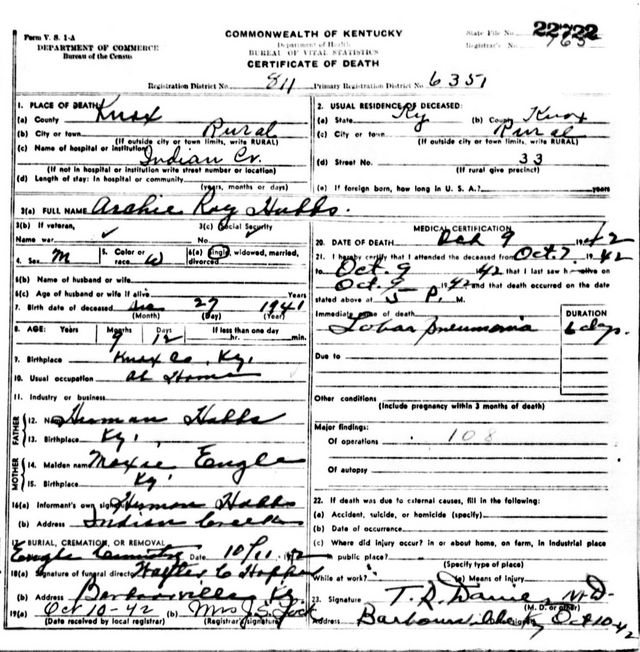 Form V. S. 1-A
DEPARTMENT OF COMMERCE
Bureau of the Census
COMMONWEALTH OF KENTUCKY
Department of Health
BUREAU OF VITAL STATISTICS
CERTIFICATE OF DEATH
State File No. 22722
Registrar's No. 765
Registration District No. 811 Primary Registration District No. 6351
1. PLACE OF DEATH
(a) County Knox
(b) City or town Rural
(If outside city or town limits, write RURAL)
(c) Name of hospital or institution
Indian Cr.
(If not in hospital or institution write street number or location)
(d) Length of stay: In hospital or community
(years, months or days)
2. USUAL RESIDENCE OF DECEASED:
(a) State Ky (b) County Knox
(c) City or town Rural
(If outside city or town limits, write RURAL)
(d) Street No. 33
(If rural give precinct)
(e) If foreign born, how long in U. S. A.? years
3(a) FULL NAME Archie Roy Hubbs.
3(b) If veteran,
Name war ✓
3(c) Social Security
No. ✓
4. Sex M
5. Color or race W
6(a) Single, widowed, married,
divorced
6(b) Name of husband or wife
6(c) Age of husband or wife if alive Years
7. Birth date of deceased 27 1941
(Month) (Day) (Year)
8. AGE: Years Months Days If less than one day
9 12 hr. min.
9. Birthplace Knox Co. Ky.
10. Usual occupation at Home
11. Industry or business
FATHER
12. Name Human Hubbs
13. Birthplace Ky.
MOTHER
14. Maiden name Moxie Engle
15. Birthplace Ky.
16(a) Informant's own signature Human Hubbs
(b) Address Indian Creek
17. BURIAL, CREMATION, OR REMOVAL
Engle Cemetery Date 10/11
18(a) Signature of funeral director Walter C Hopper
(b) Address Barbourville Ky.
19(a) Oct 10-42 (b) Mrs J. S. Lock
(Date received by local registrar) (Registrar's signature)
MEDICAL CERTIFICATION
20. DATE OF DEATH Oct 9 1942
21. I hereby certify that I attended the deceased from Oct. 7, 1942
to Oct. 9 1942 that I last saw h alive on
Oct. 9 1942 and that death occurred on the date
stated above at 5 P. M.
Immediate cause of death DURATION
Lobar Pneumonia 6 days
Due to
Other conditions
(Include pregnancy within 3 months of death)
Major findings:
Of operations 108
Of autopsy
22. If death was due to external causes, fill in the following:
(a) Accident, suicide, or homicide (specify)
(b) Date of occurrence
(c) Where did injury occur? in or about home, on farm, in industrial place
in public place?
(Specify type of place)
While at work? (e) Means of injury
23. Signature T. R. Davies M.D.
(M. D. or other)
Address Barbourville Ky Oct 10 42